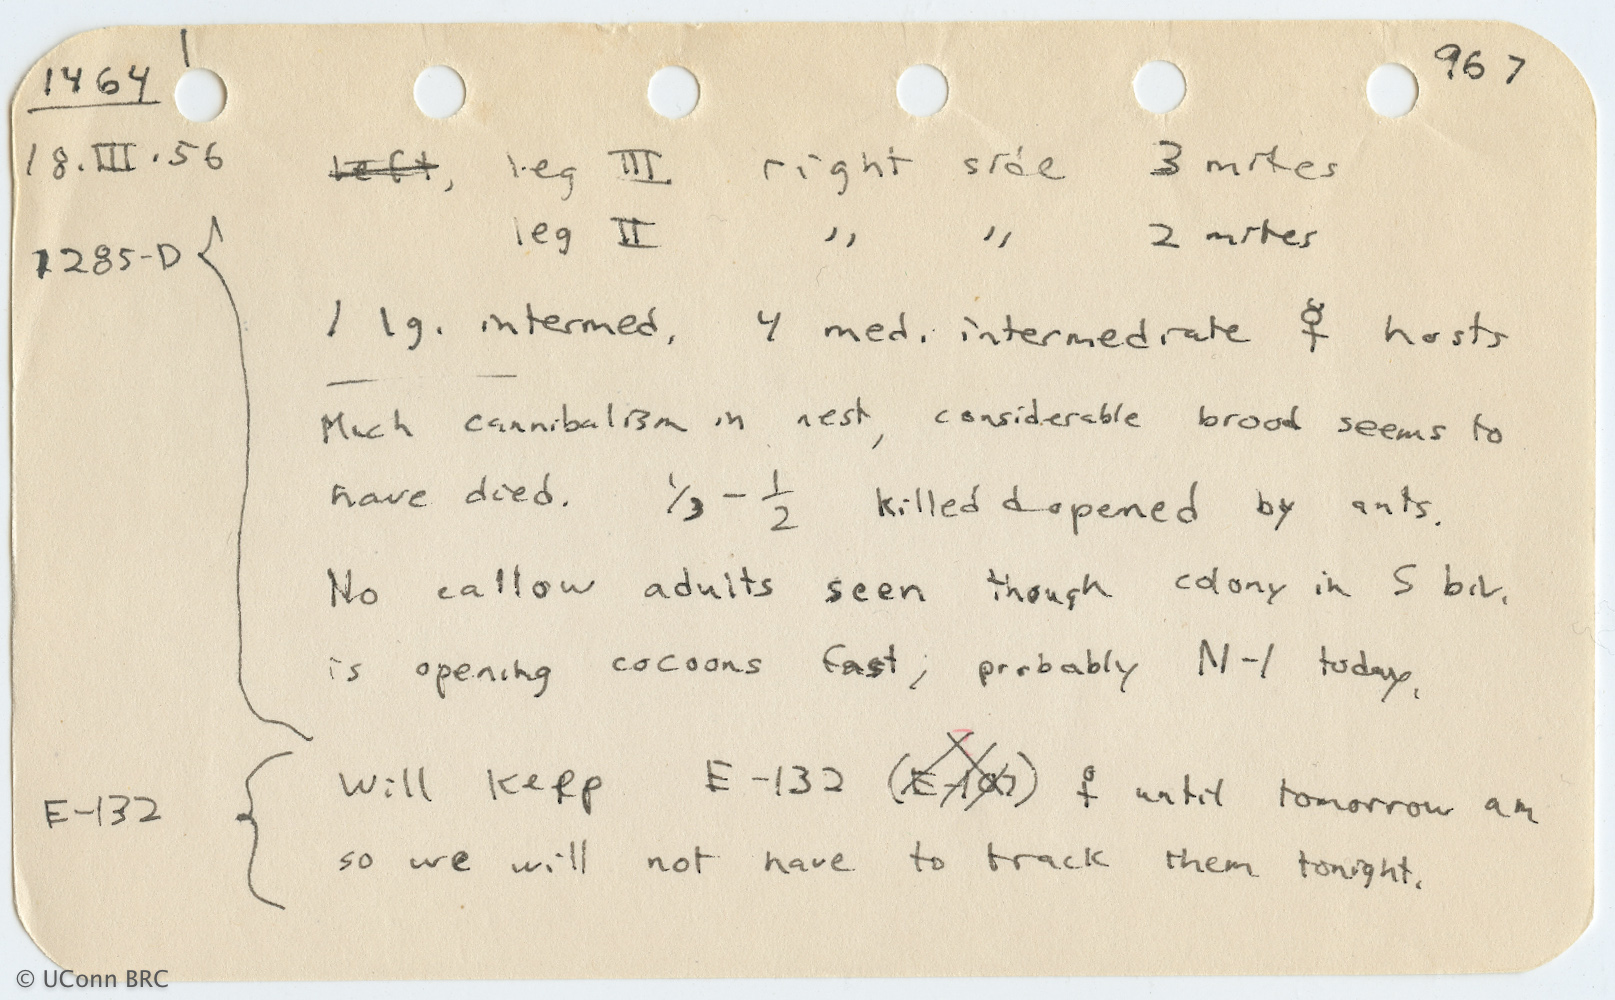 1464
967
18.III.56
left, leg III right side 3 mites
leg II " " 2 mites
1285-D
1 lg. intermed, 4 med. intermediate ☿ hosts
Much cannibalism in nest, considerable brood seems to
have died. 1/3 - 1/2 killed & opened by ants.
No callow adults seen though colony in S biv.
is opening cocoons fast; probably N-1 today.
E-132
Will keep E-132 ♀ until tomorrow am
so we will not have to track them tonight.
© UConn BRC